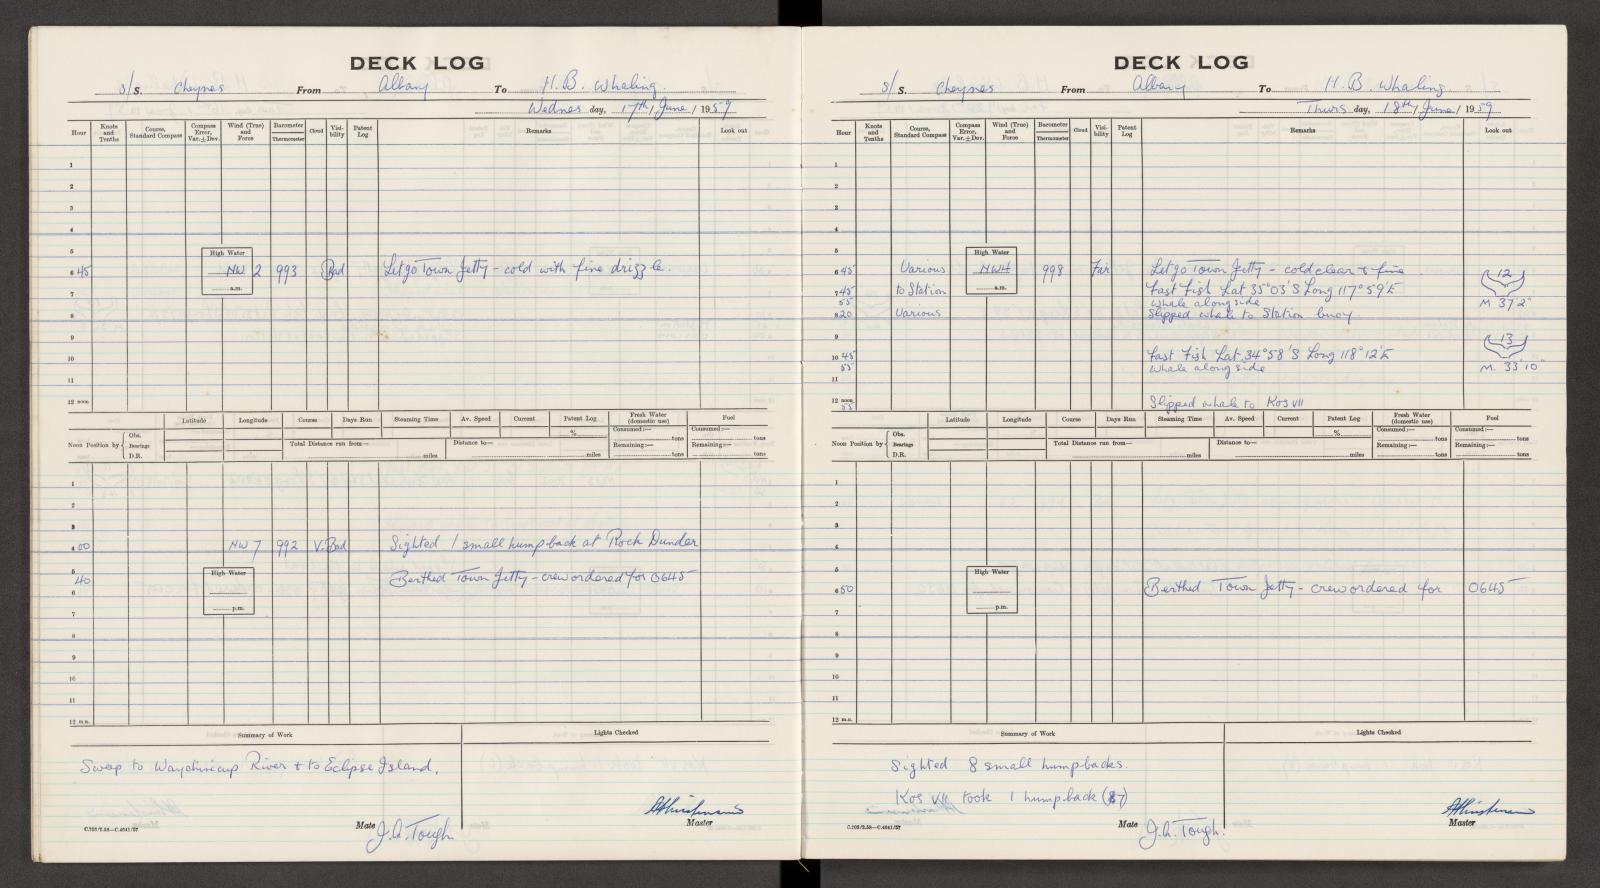 DECK LOG
s/S. Cheynes From Albany To H.B. Whaling
Wednes day, 17th / June / 1959
Hour Knots and Tenths Course, Standard Compass Compass Error, Var.±Dev. Wind (True) and Force Barometer Thermometer Cloud Visibility Patent Log Remarks Look out
1
2
3
4
5 High Water
6 45 NW 2 993 Bad Let go Town Jetty - cold with fine drizzle.
7 a.m.
8
9
10
11
12 noon
Latitude Longitude Course Days Run Steaming Time Av. Speed Current Patent Log Fresh Water (domestic use) Fuel
Noon Position by Obs. Bearings D.R. % Consumed:— tons Consumed:—
Total Distance run from— miles Distance to— miles Remaining:— tons Remaining:— tons
1
2
3
4 00 NW 7 992 V. Bad Sighted 1 small humpback at Rock Dunder
5 40 High Water Berthed Town Jetty - crew ordered for 0645
6
7 p.m.
8
9
10
11
12 m.n.
Summary of Work Lights Checked
Sweep to Waychinicup River & to Eclipse Island.
Mate J.A. Tough. Master
C.703/2.58—C.4641/57
DECK LOG
s/S. Cheynes From Albany To H.B. Whaling
Thurs day, 18th / June / 1959
Hour Knots and Tenths Course, Standard Compass Compass Error, Var.±Dev. Wind (True) and Force Barometer Thermometer Cloud Visibility Patent Log Remarks Look out
1
2
3
4
5 High Water
6 45 Various NW4 998 Fair Let go Town Jetty - cold clear & fine 12
7 45 to Station a.m. Fast Fish Lat 35°03'S Long 117°59'E
55 Whale alongside M 37'2"
8 20 Various Slipped whale to Station buoy
9 13
10 45 Fast Fish Lat. 34°58'S Long 118°12'E
55 Whale alongside M. 33'10"
11
12 noon
55 Slipped whale to Kos VII
Latitude Longitude Course Days Run Steaming Time Av. Speed Current Patent Log Fresh Water (domestic use) Fuel
Noon Position by Obs. Bearings D.R. % Consumed:— tons Consumed:— tons
Total Distance run from— miles Distance to— miles Remaining:— tons Remaining:— tons
1
2
3
4
5 High Water
6 50 Berthed Town Jetty - crew ordered for 0645
7 p.m.
8
9
10
11
12 m.n.
Summary of Work Lights Checked
Sighted 8 small humpbacks.
Kos VII took 1 humpback (87)
Mate J.A. Tough. Master
C.703/2.58—C.4641/57